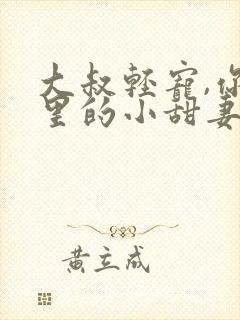 大叔輕寵,你
里的小甜妻
黃立成